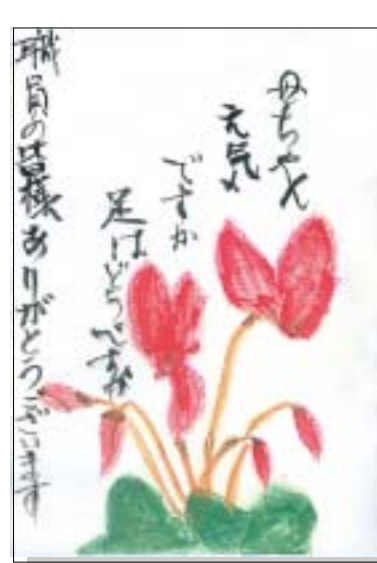 母ちゃん
元気
ですか
足はどうですか
職員の皆様ありがとうございます